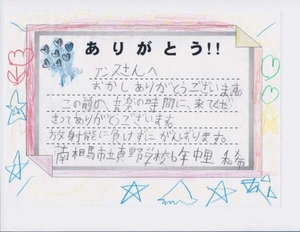 ありがとう!!
アンスさんへ
おかしありがとうございます
この前の音楽の時間に、来てくだ
さってありがとうございます
放射能に負けずにがんばります。
南相馬市立真野小学校6年中里